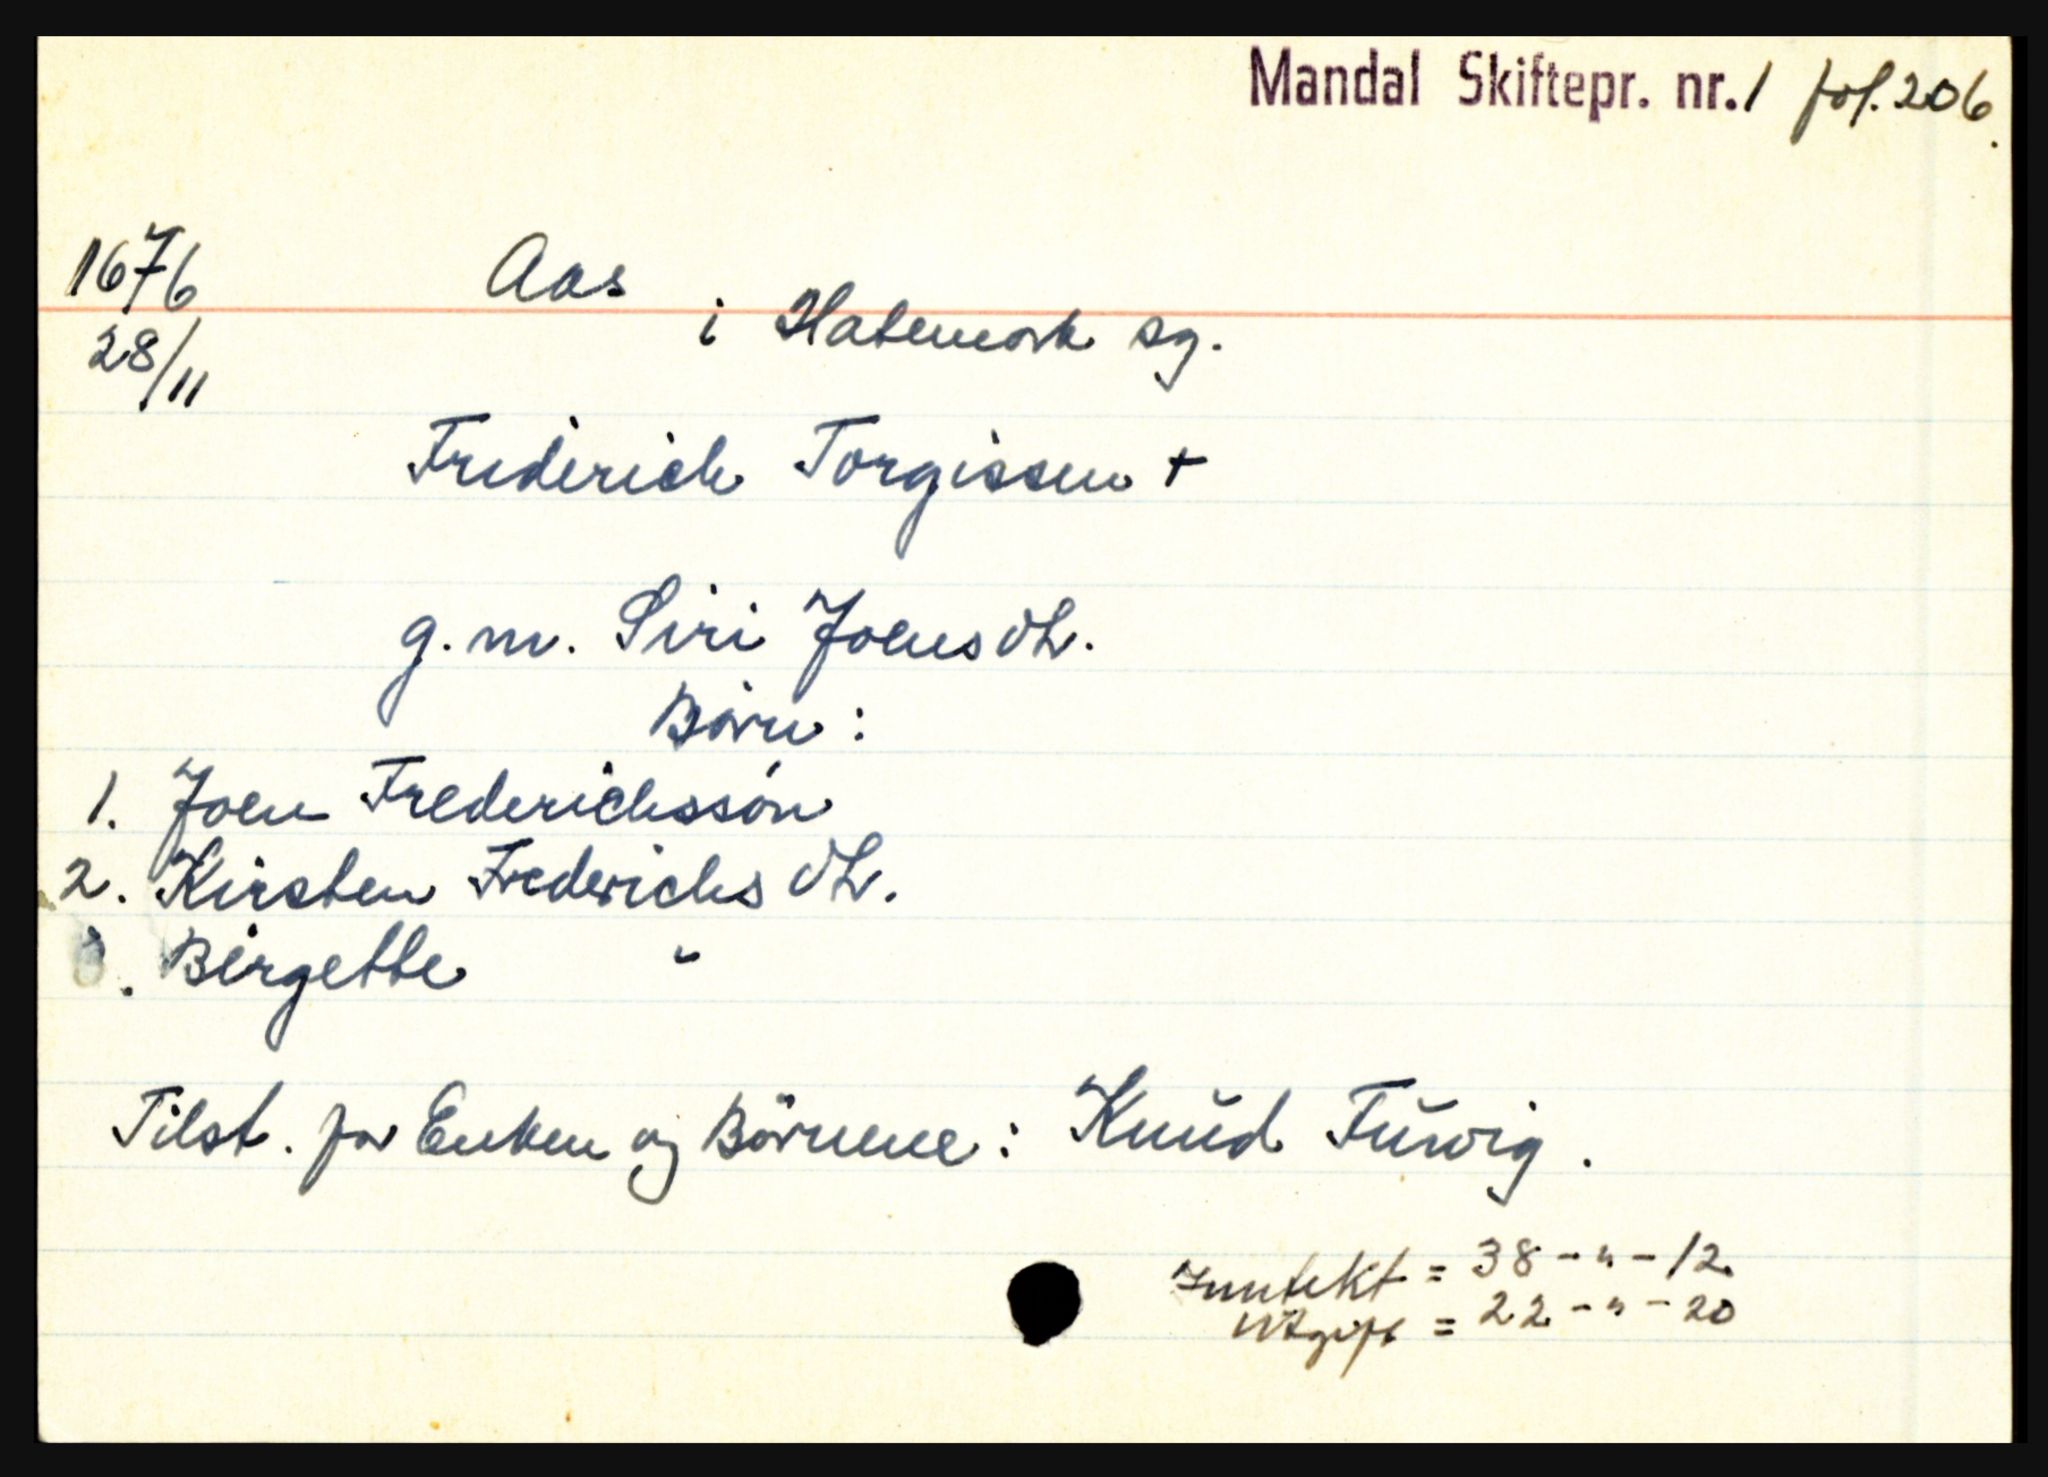 Mandal Skiftepr. nr. 1 fol. 206.
1676 Aas
28/11 i Hatemark sg.
Friderich Torgissen +
g. m. Siri Joensdtr.
Børn:
1. Joen Frederichssøn
2. Kirsten Frederichsdtr.
3. Birgette "
Tilst. for Enken og Børnene: Knŭd Fŭwig.
Inntekt = 38 - " - 12
Utgift = 22 - " - 20